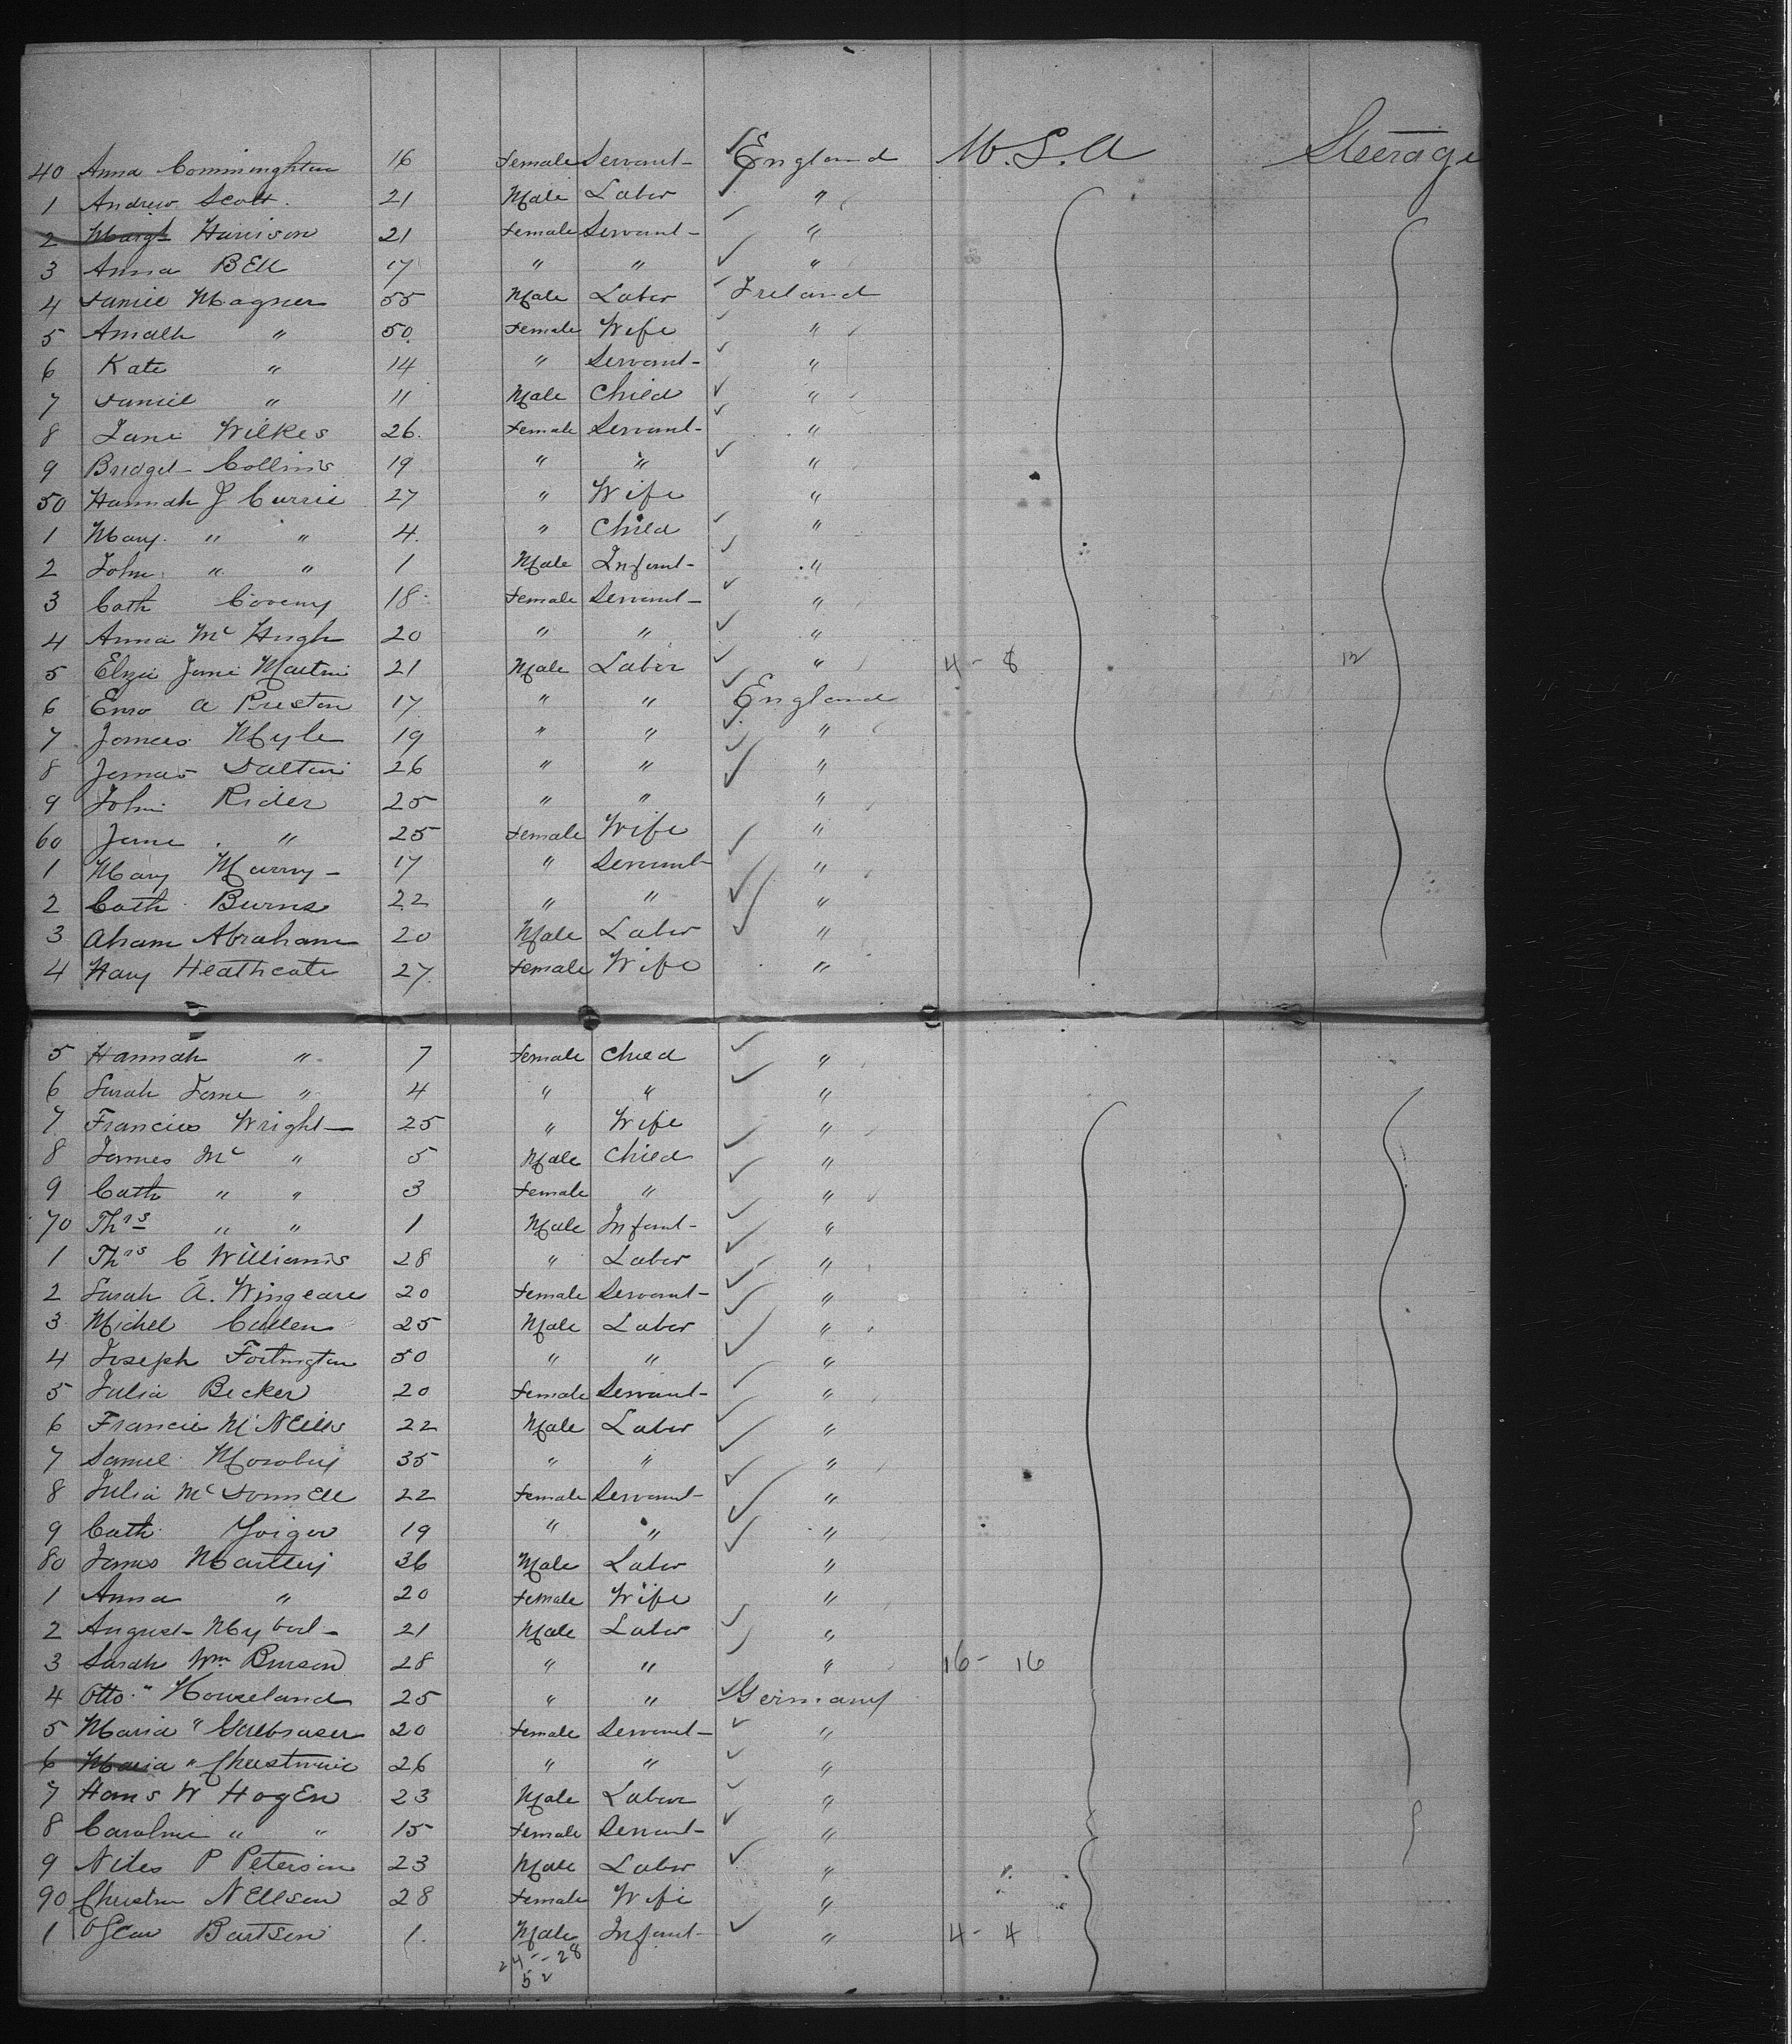 40 Anna Comminghton 16 Female Servant England U.S.A Steerage
1 Andrew Scott 21 Male Labor "
2 Margt Harrison 21 Female Servant "
3 Anna Bell 17 " " "
4 Daniel Magner 55 Male Labor Ireland
5 50 Female Wife "
6 Kate " 14 " Servant "
7 Daniel " 11 Male Child "
8 Jane Wilkes 26 Female Servant "
9 Bridget Collins 19 " " "
50 Hannah J Currie 27 " Wife "
1 Mary " " 4 " Child "
2 John " " 1 Male Infant "
3 Cath Coveny 18 Female Servant "
4 Anna Mc Hugh 20 " " "
5 Eliza Jane Martin 21 Male Labor " 4 - 8 12
6 a Preston 17 " " England
7 James 19 " " "
8 James Dalton 26 " " "
9 John Rider 25 " " "
60 Jane " 25 Female Wife "
1 Mary Murry 17 " Servant "
2 Cath Burns 22 " " "
3 Abram Abraham 20 Male Labor "
4 Mary Heathcate 27 Female Wife "
5 Hannah " 7 Female Child "
6 Sarah Jane " 4 " " "
7 Francies Wright 25 " Wife "
8 James Mc " 5 Male Child "
9 Cath " " 3 Female " "
70 Thos " " 1 Male Infant "
1 Thos C Williams 28 " Labor "
2 Sarah A. Wingeare 20 Female Servant "
3 Michel Cullen 25 Male Labor "
4 Joseph Fortington 50 " " "
5 Julia Becker 20 Female Servant "
6 Francis McNeills 22 Male Labor "
7 Samuel 35 " " "
8 Julia Mc Donnell 22 Female Servant "
9 Cath 19 " " "
80 James 36 Male Labor "
1 Anna " 20 Female Wife "
2 August 21 Male Labor "
3 Sarah Wm 28 " " " 16 - 16
4 Otto " Houseland 25 " " Germany
5 Maria " 20 Female Servant "
6 Maria " 26 " " "
7 Hans W Hogen 23 Male Labor "
8 Caroline " " 15 Female Servant "
9 Niles P Peterson 23 Male Labor "
90 Christin Nellson 28 Female Wife "
1 Bartsen 1 Male Infant " 4 - 4
24 - 28
52